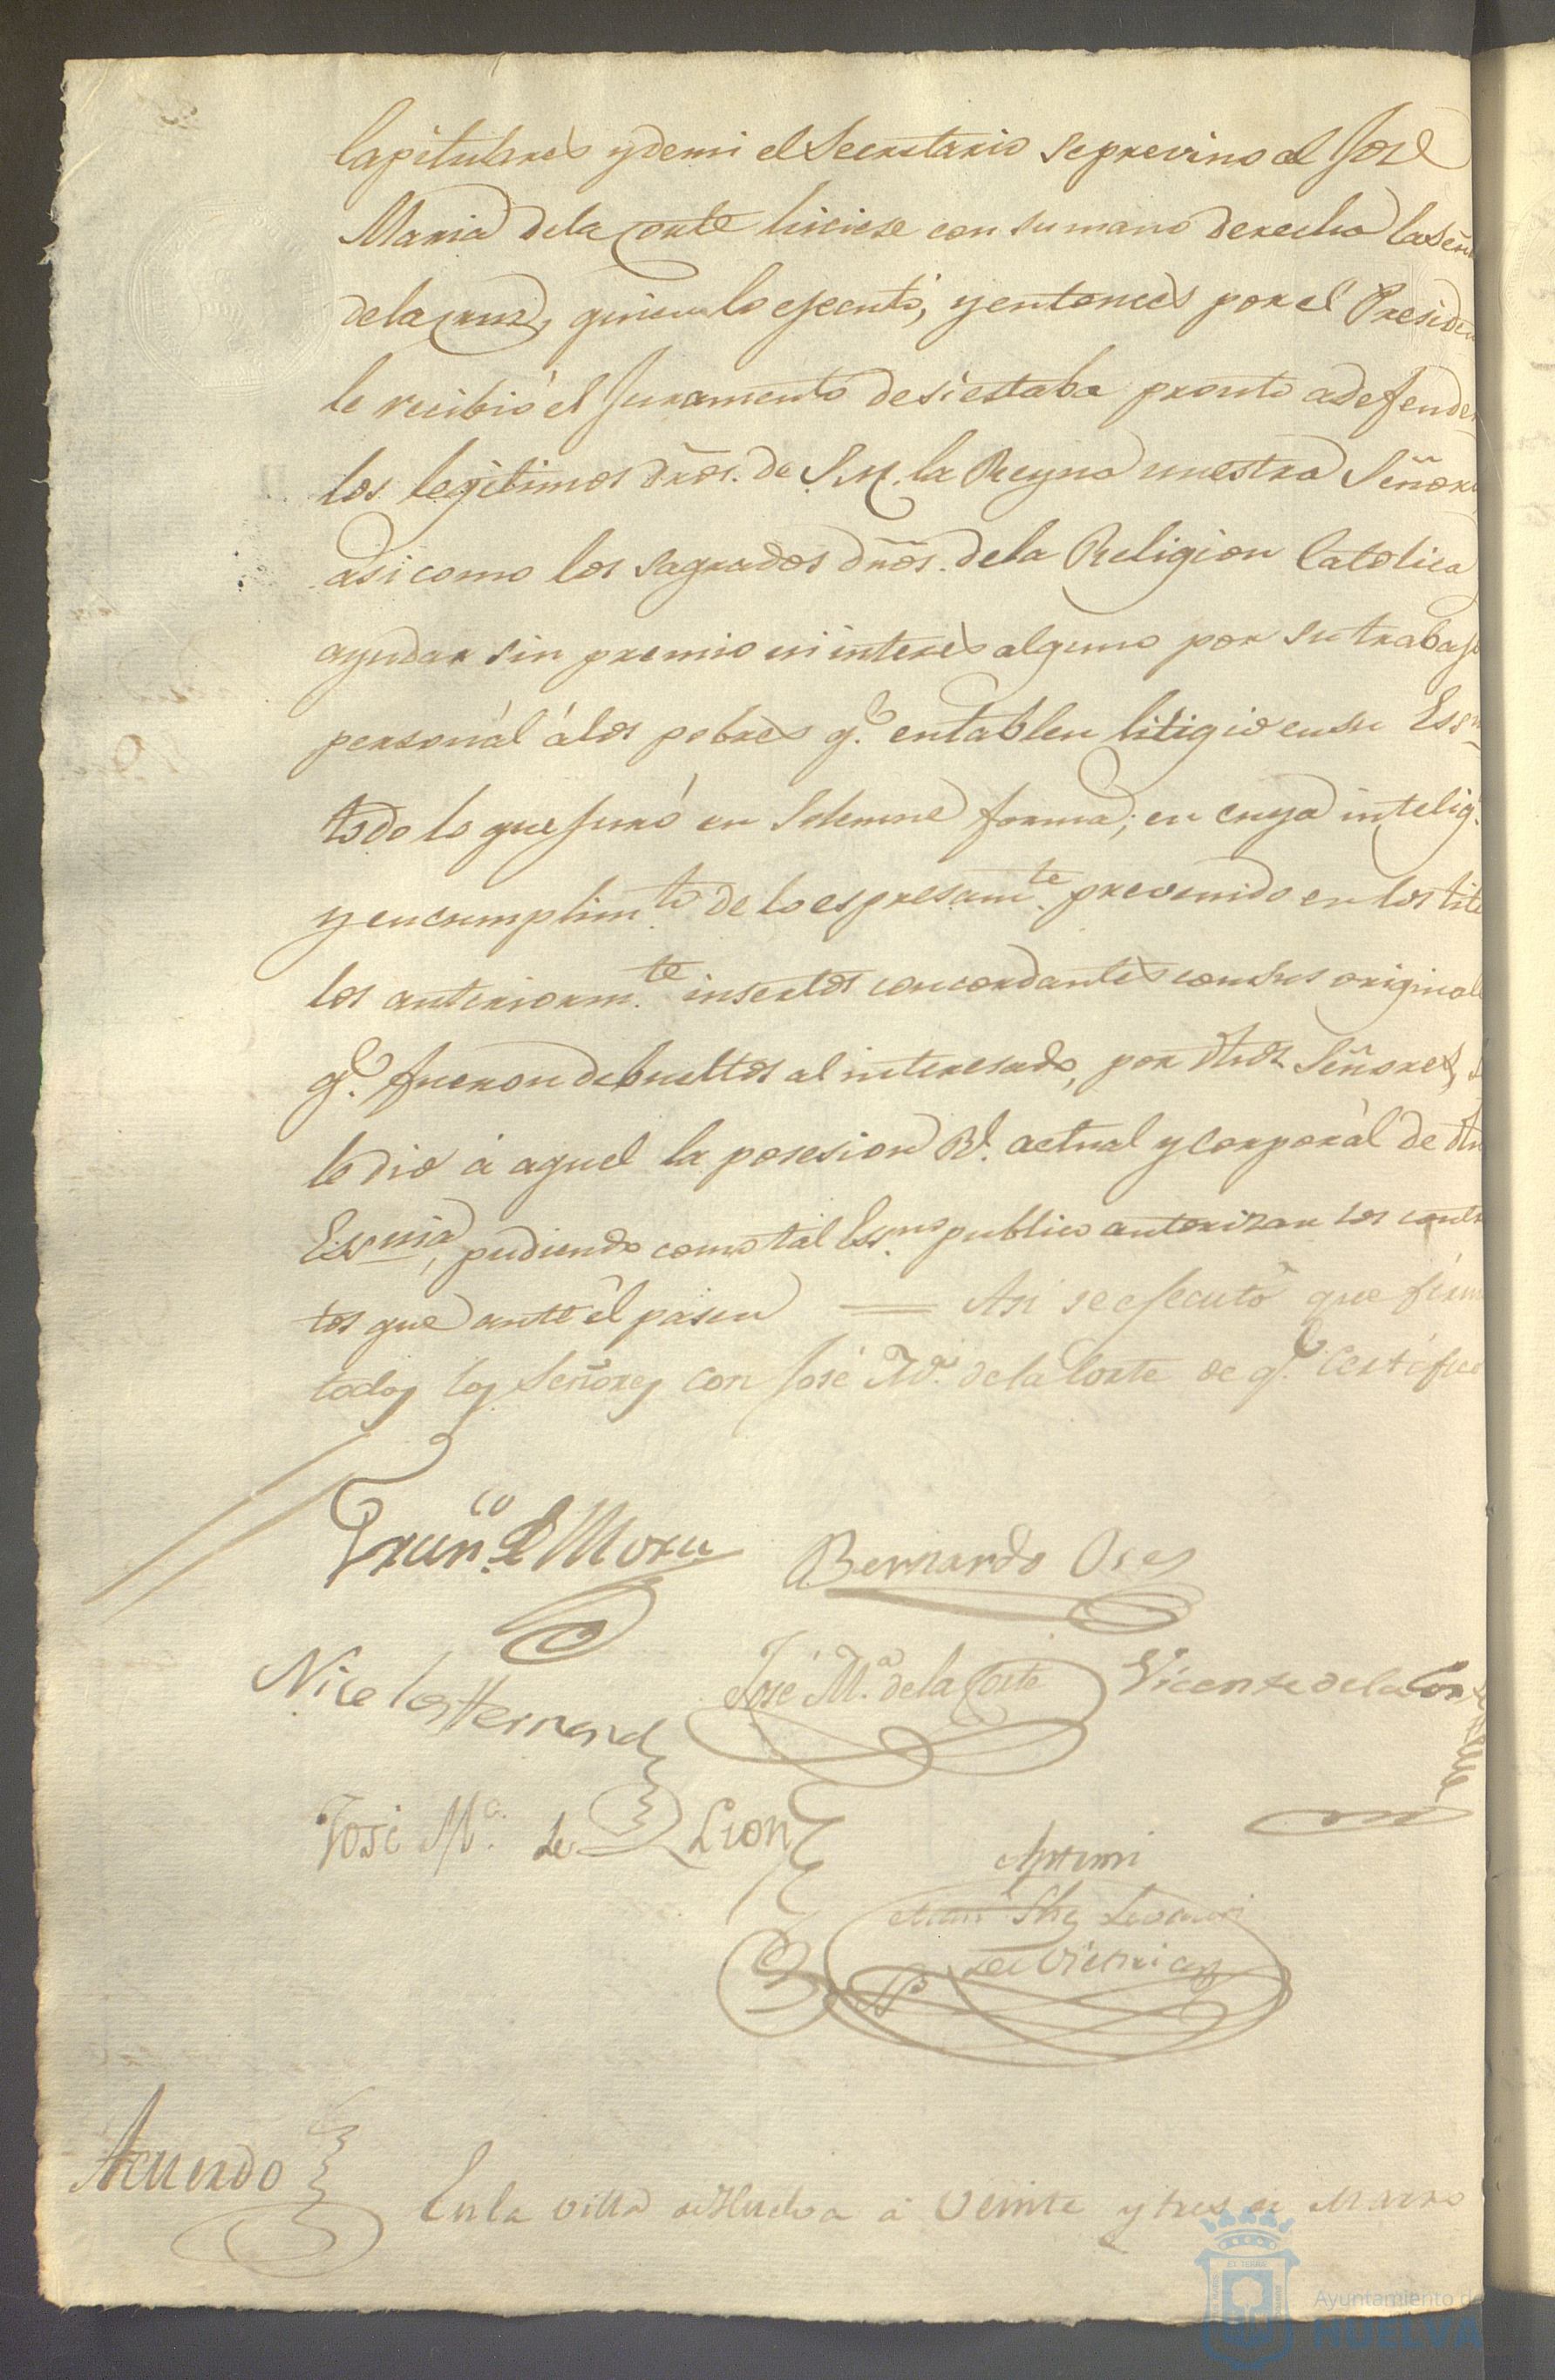 Capitulares y de mi el Secretario se previno al José
Maria de la Corte hiciese con su mano derecha la señ
de la cruz, quien lo ejecutó, y entonces por el Presiden
le recibió el Juramento de si estaba pronto a defender
los legitimos dr̃os. de S. M. la Reyna nuestra Señora
asi como los sagrados dr̃os. de la Religion Catolica
ayudar sin premio ni interes alguno por su trabajo
personál á los pobres q.e entablen litigio en su Esc.
todo lo que juró en Solemne forma; en cuya intelig.
y en cumplim.to de lo espresam.te prevenido en los titu
los anteriorm.te insertos concordantes con sus original
q.e fueron debueltos al interesado, por dhos Señores, s
le dió á aquel la posesion Rl. actual y corporál de dha
Essnia, pudiendo como tal Ess.no publico autorizar los contra
tos que ante él pasen = Asi se ejecutó que firm
todos los Señores con José M.a de la Corte de q.e Certifico
Fran.co de Mora Bernardo Oses
Nicolas Hernand
José M.a de la Corte Vicente de la Corte
José M.a de Leon
Ante mi
de Viernias
Acuerdo En la villa de Huelva á veinte y tres de Marzo
Ayuntamiento de
HUELVA